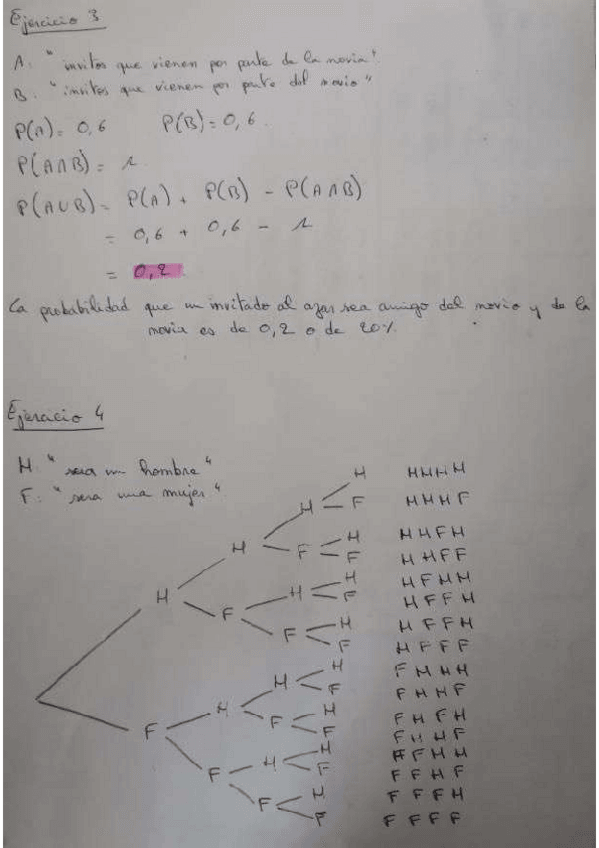 Ejercicio 3
A: "invitos que vienen por parte de la novia"
B: "invitos que vienen por parte del novio"
P(A) = 0,6 P(B) = 0,6
P(A∩B) = 1
P(A∪B) = P(A) + P(B) - P(A∩B)
= 0,6 + 0,6 - 1
= 0,2
La probabilidad que un invitado al azar sea amigo del novio y de la
novia es de 0,2 o de 20%.
Ejercicio 4
H: "sea un hombre"
F: "sera una mujer"
H HHHH
H F HHHF
H HHFH
H F F HHFF
H HFHH
H H F HFFH
F H HFFH
F F HFFF
H FHHH
H F FHHF
H H FHFH
F F F FHHF
H H FFHH
F F FFHF
H FFFH
F F FFFF